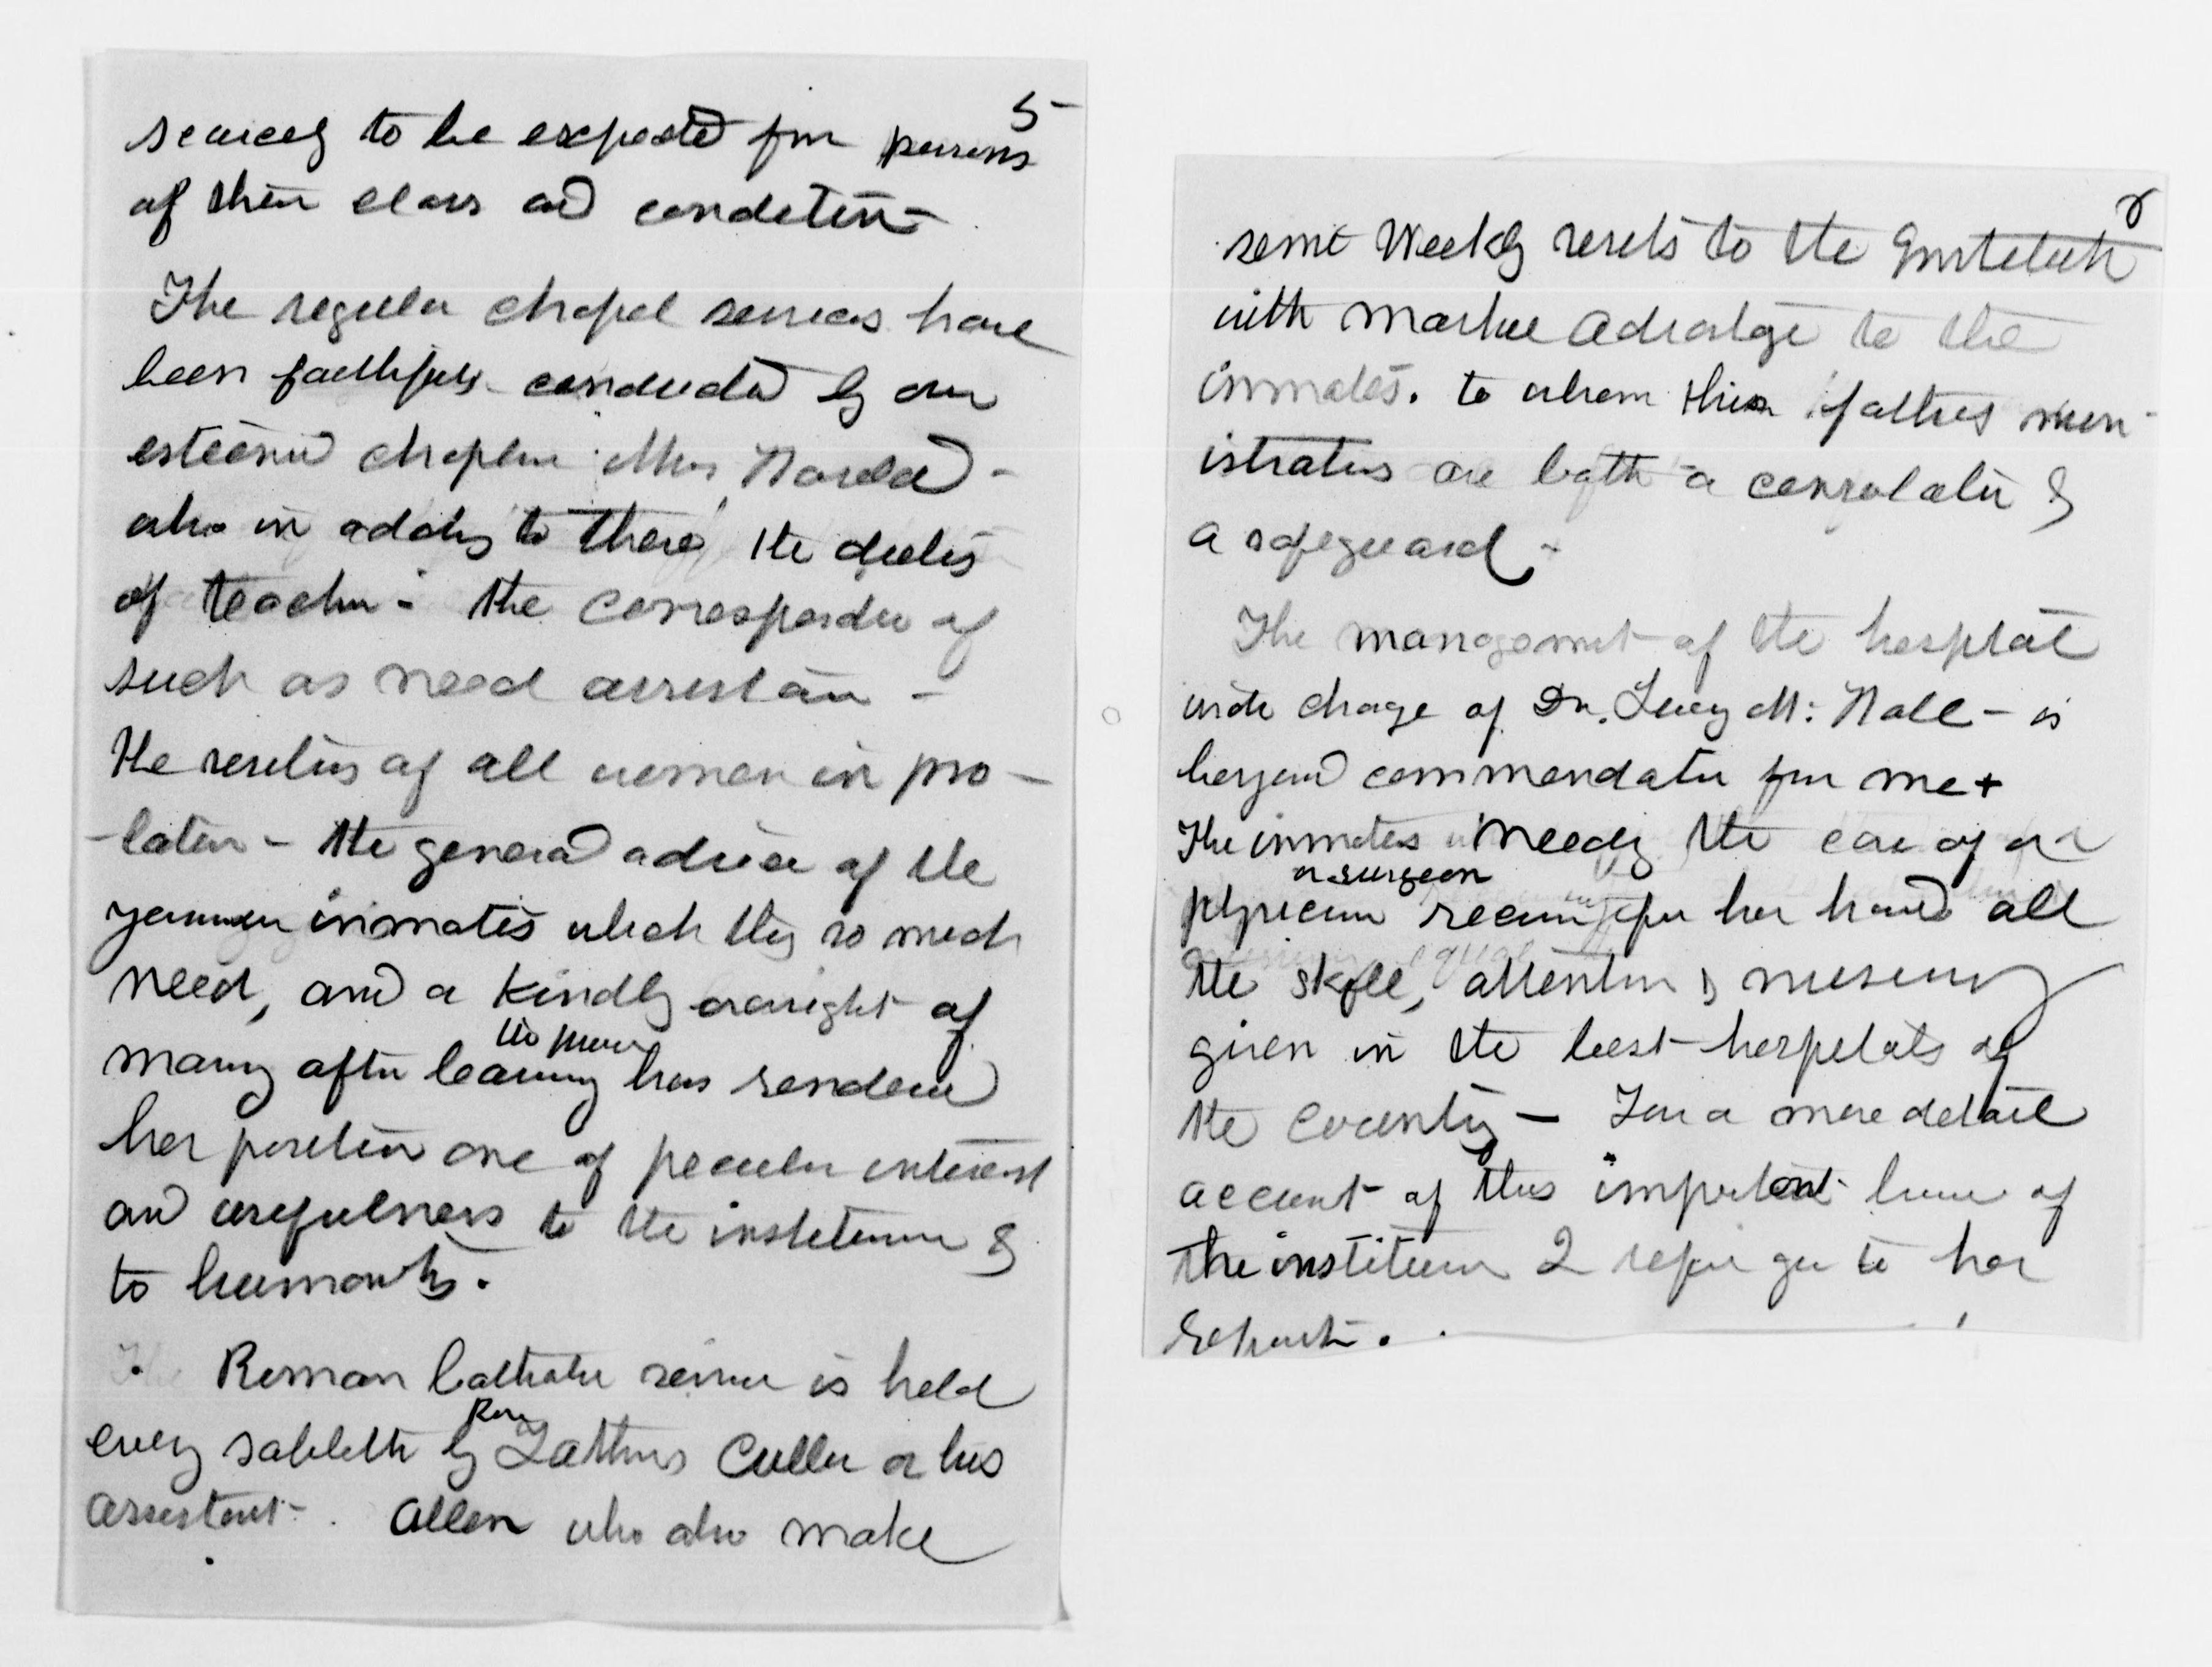 5
scarcely to be expected from persons
of their class and condition -
The regular chapel services have
been faithfully conducted by our
esteemed chaplain Mrs
who in addition to these, the duties
of teacher - the correspondence of
such as need assistance -
the visiting of all women in pro-
-bation - the general advice of the
younger inmates which they so much
need, and a kindly oversight of
many after leaving the prison has rendered
her position one of peculiar interest
and usefulness to the institution &
to humanity.
Roman Catholic service is held
every sabbath by Rev Fathers Cullen or his
assistant. Allen who also make
semi Weekly visits to the Institution
with marked advantage to the
inmates. to whom their faithful min-
istrations are both a consolation &
a safeguard.
The management of the hospital
under charge of Dr. Lucy M. Hall - is
beyond commendation from me +
The inmates needing the care of a
physician or surgeon receiving from her hand all
the skill, attention & nursing
given in the best hospitals of
the country - For a more detailed
account of this important branch of
the institution I refer you to her
report.